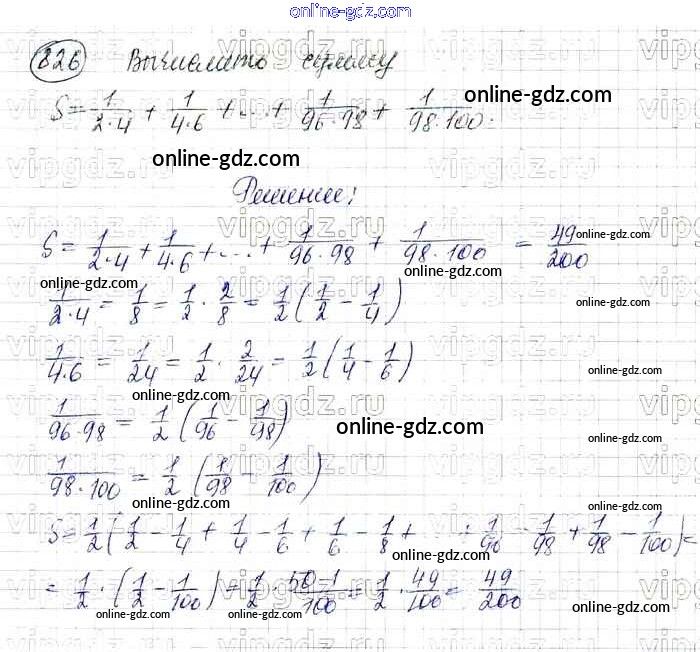 online-gdz.com
826 Вычислить сумму
S = 1/(2·4) + 1/(4·6) + ... + 1/(96·98) + 1/(98·100).
online-gdz.com
online-gdz.com
Решение:
S = 1/(2·4) + 1/(4·6) + ... + 1/(96·98) + 1/(98·100) = 49/200
online-gdz.com
online-gdz.com
online-gdz.com
1/(2·4) = 1/8 = 1/2 · 2/8 = 1/2 (1/2 - 1/4)
online-gdz.com
1/(4·6) = 1/24 = 1/2 · 2/24 = 1/2 (1/4 - 1/6)
online-gdz.com
online-gdz.com
1/(96·98) = 1/2 (1/96 - 1/98)
online-gdz.com
1/(98·100) = 1/2 (1/98 - 1/100)
online-gdz.com
online-gdz.com
S = 1/2 (1/2 - 1/4 + 1/4 - 1/6 + 1/6 - 1/8 + ... + 1/96 - 1/98 + 1/98 - 1/100) =
online-gdz.com
= 1/2 · (1/2 - 1/100) = 1/2 · (50-1)/100 = 1/2 · 49/100 = 49/200
online-gdz.com
online-gdz.com
vipgdz.ru